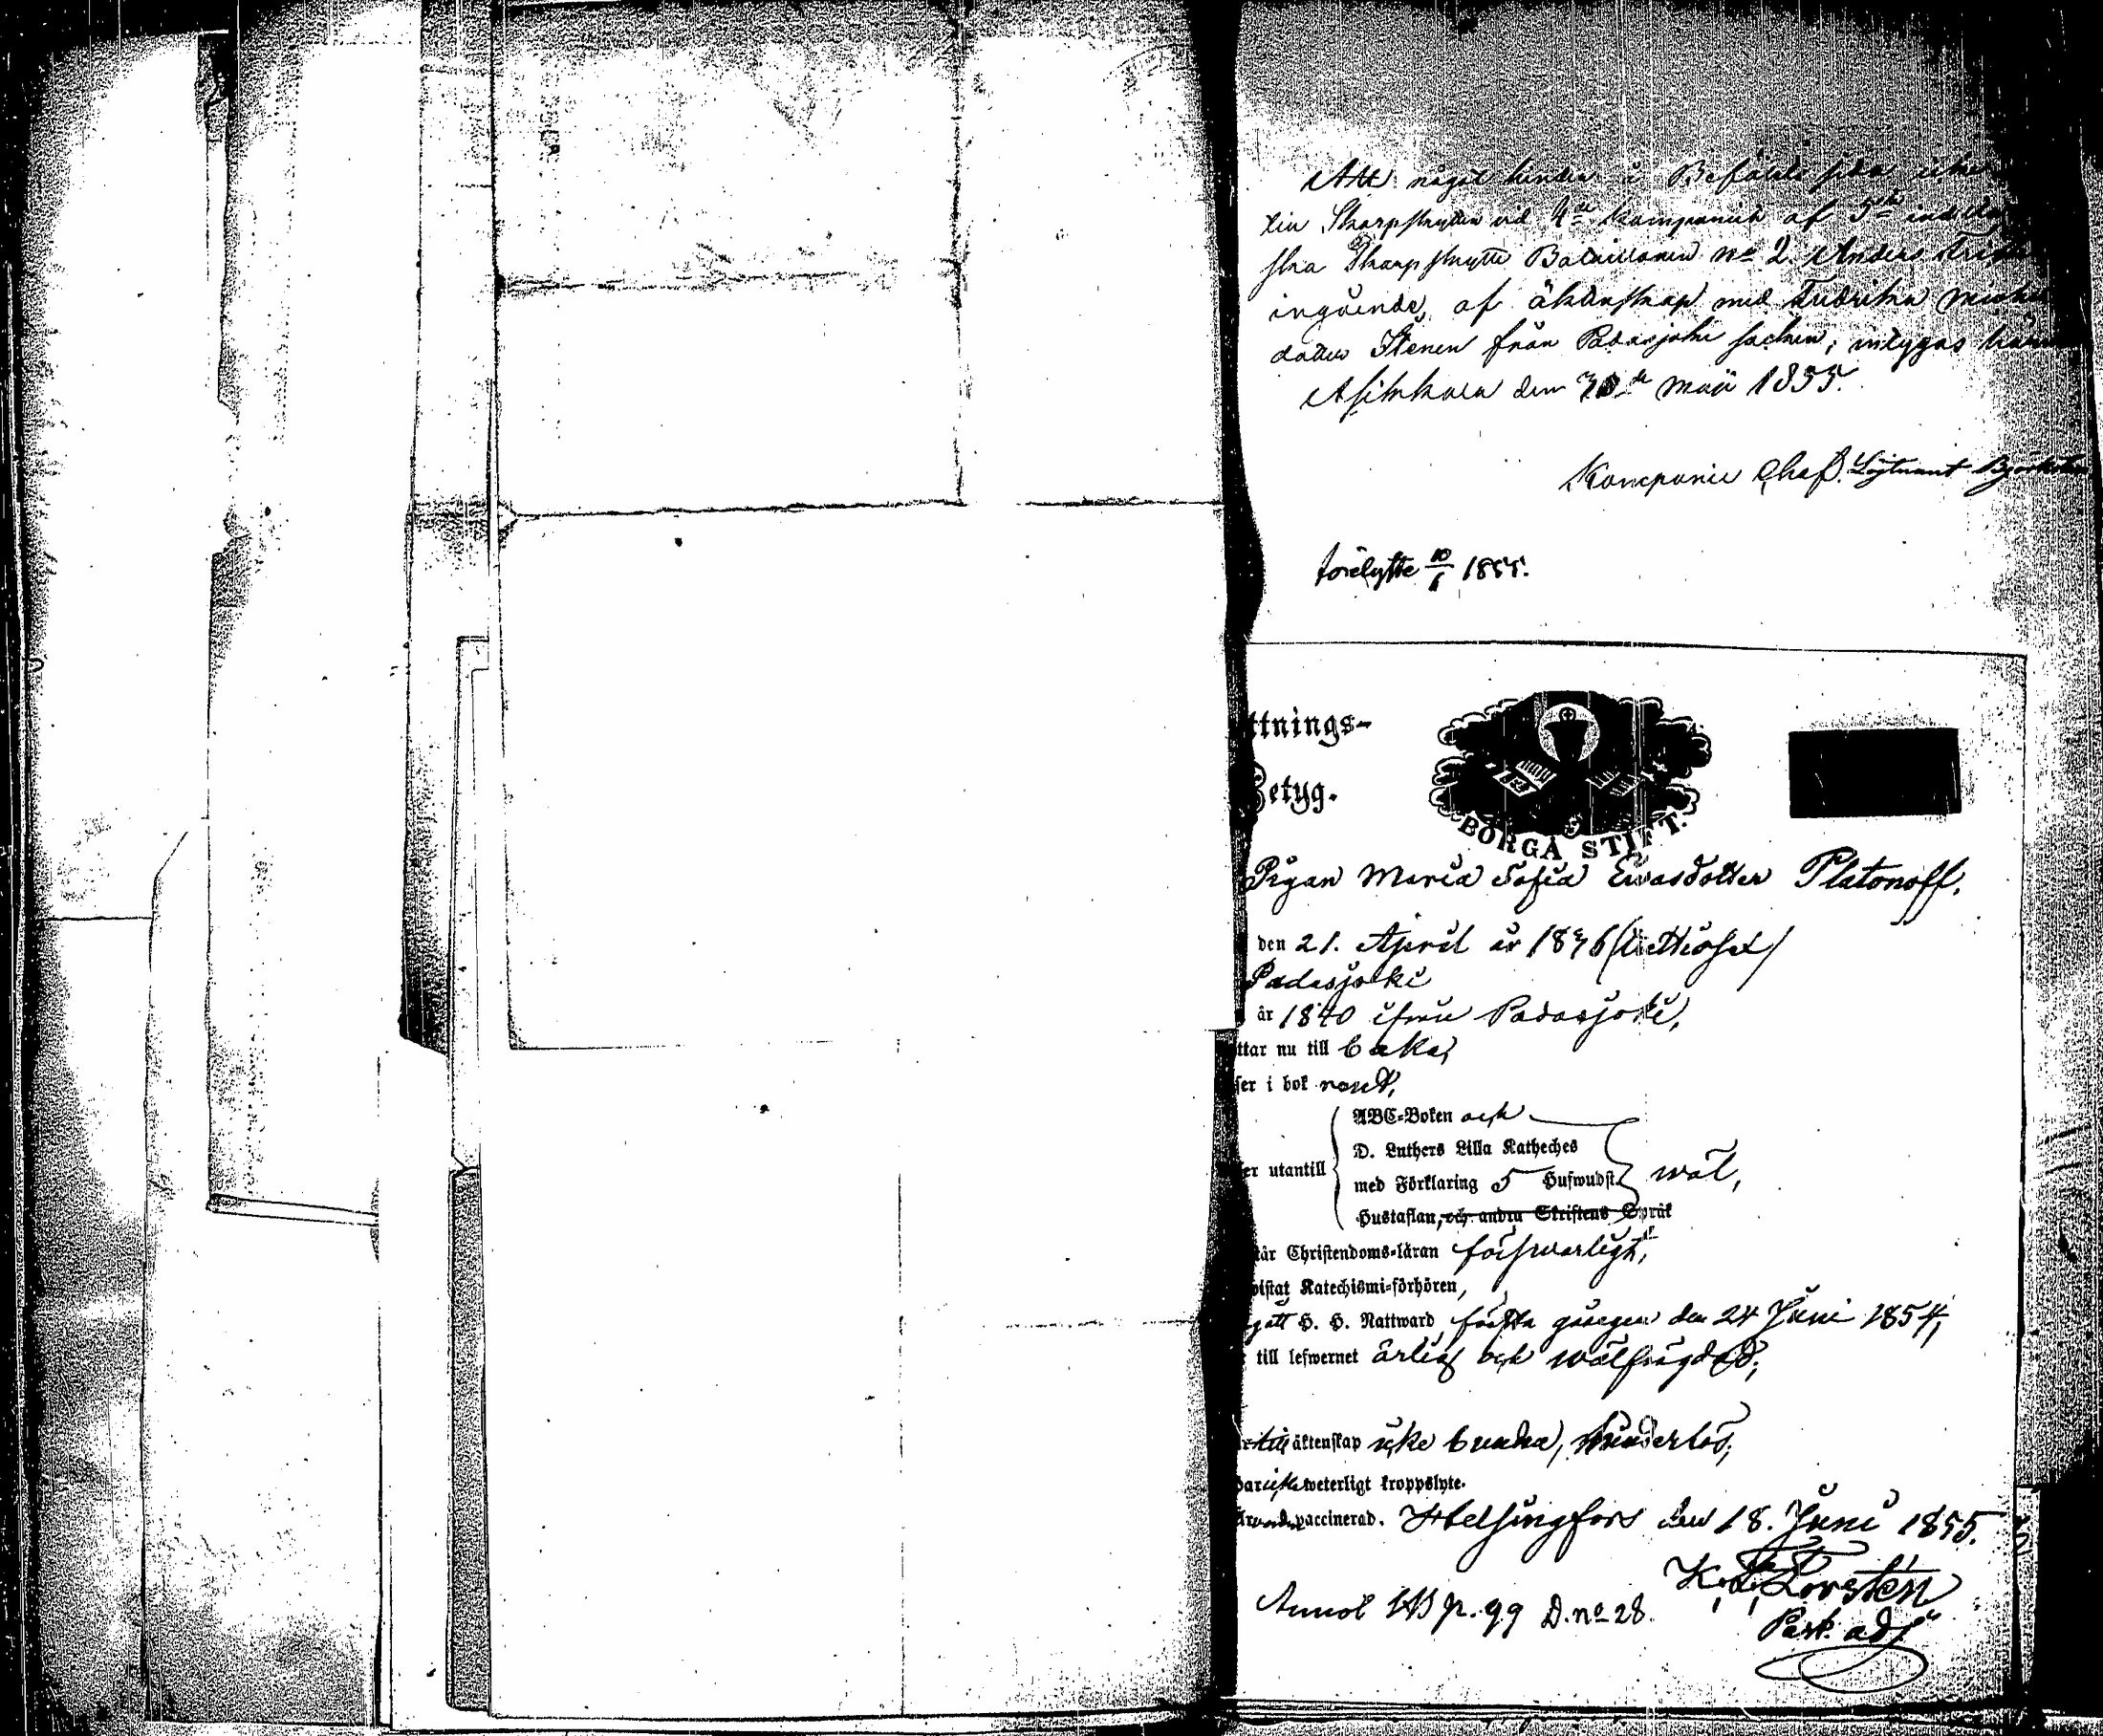 Att något hinder i Befäls
Skarpskytten vid 4de Kompaniet af 5te indelta
ska Skarpskytte Bataillonen No 2 Anders
ingående af äktenskap med Fredrika
dotter Stenen från Padasjoki socken, intygas
Asikkala den 30de Maii 1855.
Kompanie Chef. Löjtnant
förelyste 10/6 1855.
ttnings-
Betyg.
BORGÅ STIFT.
Pigan Maria Sofia Evasdotter Platonoff,
den 21. April år 1836 (trettiosex)
Padasjoki
år 1840 ifrån Padasjoki,
ttar nu till baka,
ser i bok rent,
ABC-Boken och
D. Luthers Lilla Katheches
er utantill
med Förklaring 5 Hufwudst. wäl,
Hustaflan, och andra Skriftens Språk
tår Christendoms-läran förswarligt,
wistat Katechismi-förhören,
gått H. H. Nattward första gången den 24 Juni 1854,
till lefwernet ärlig och wälfrägdad,
äktenskap icke bunden, hinderlös,
har icke weterligt kroppslyte.
vaccinerad. Helsingfors den 18. Juni 1855.
K. F. Forstén
Annot p. 99 D. no 28.
Past. adj